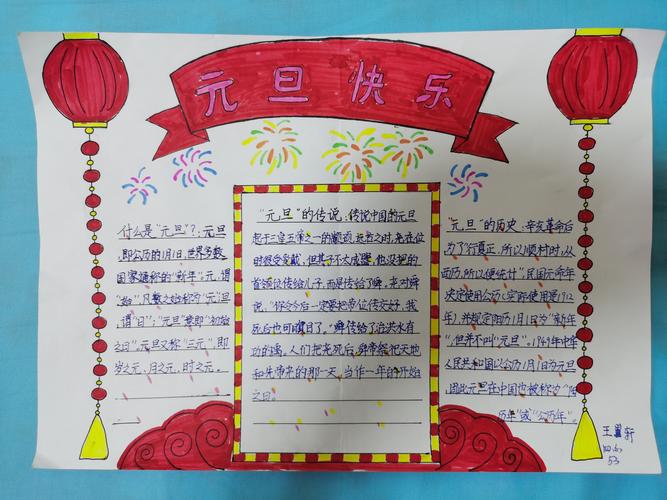 元旦快乐
什么是"元旦"?:元旦
即公历的1月1日,世界多数
国家通称的"新年"。元,谓
"始",凡数之始称为"元";旦
谓"日";"元旦"意即"初始
之日"。元旦又称"三元",即
岁之元、月之元、时之元。
"元旦"的传说:传说中国的元旦
起于三皇五帝之一的颛顼,远古之时,尧在位
时很受爱戴,但其子不太成器,他没把的
首领议传给儿子,而是传给了舜,尧对舜
说,"你今今后一定要把帝位传交好,我
死后也可瞑目了。"舜传给了治洪水有
功的禹,人们把尧死后,舜帝祭祀天地
和先帝尧的那一天,当作一年的开始
之日。
"元旦"的历史:辛亥革命后
为了"行夏正,所以顺村时,从
西历,所以便统计",民国元年
决定使用公历(实际使用是1912
年),并规定阳历1月1日为"新年
",但并不叫"元旦"。1949年中华
人民共和国以公历1月1日为元旦
,因此元旦在中国也被称为"阳
历年"或"公历年"。
王 轩
53